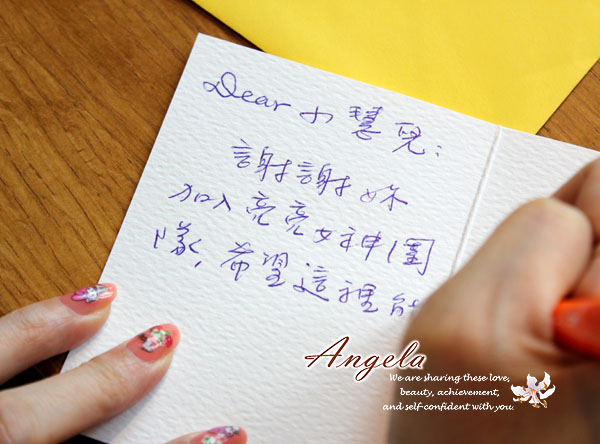 Dear 小慧兒:
謝謝妳
加入亮亮女神團
隊,希望這裡能
Angela
We are sharing these love,
beauty, achievement,
and self-confident with you.